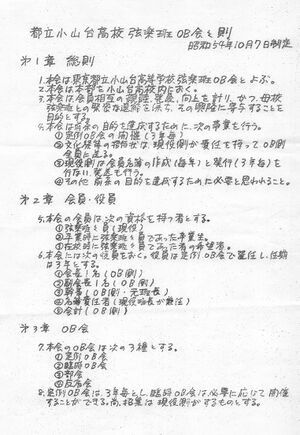 都立小山台高校 弦楽班OB会会則
昭和54年10月7日制定
第1章 総則
1.本会は東京都立小山台高等学校 弦楽班OB会とよぶ。
2.本会は本部を小山台高校内におく。
3.本会は会員相互の親睦、発展、向上を計り、かつ、母校
弦楽班との緊密な連絡を保ち、その興隆に寄与することを
目的とする。
4.本会は前条の目的を達成するために、次の事業を行う。
①定例OB会の開催(3年毎)
は現役側が責任を持ってOB側
全員に送る。
③現役側は会員名簿の作成(毎年)と発行(3年毎)を
行ない発送も行う。
④その他 前条の目的を達成するために必要と思われること。
第2章 会員・役員
5.本会の会員は次の資格を持つ者とする。
①弦楽班々員(現役)
②卒業時に弦楽班々員であった卒業生。
③在校時に弦楽班々員であった者の希望者。
6.本会には次の役員をおく。役員は定例OB会で選任し、任期
は3年とする。
①会長1名(OB側)
②副会長1名(OB側)
③幹事(OB側・元班長)
④名簿責任者(現役班長が兼任)
⑤会計(OB側)
第3章 OB会
7.本会のOB会は次の3種とする。
①定例OB会
②臨時OB会
③部会
④反省会
8.定例OB会は、3年毎とし、臨時OB会は必要に応じて開催
することができる。尚、招集は現役側がするものとする。